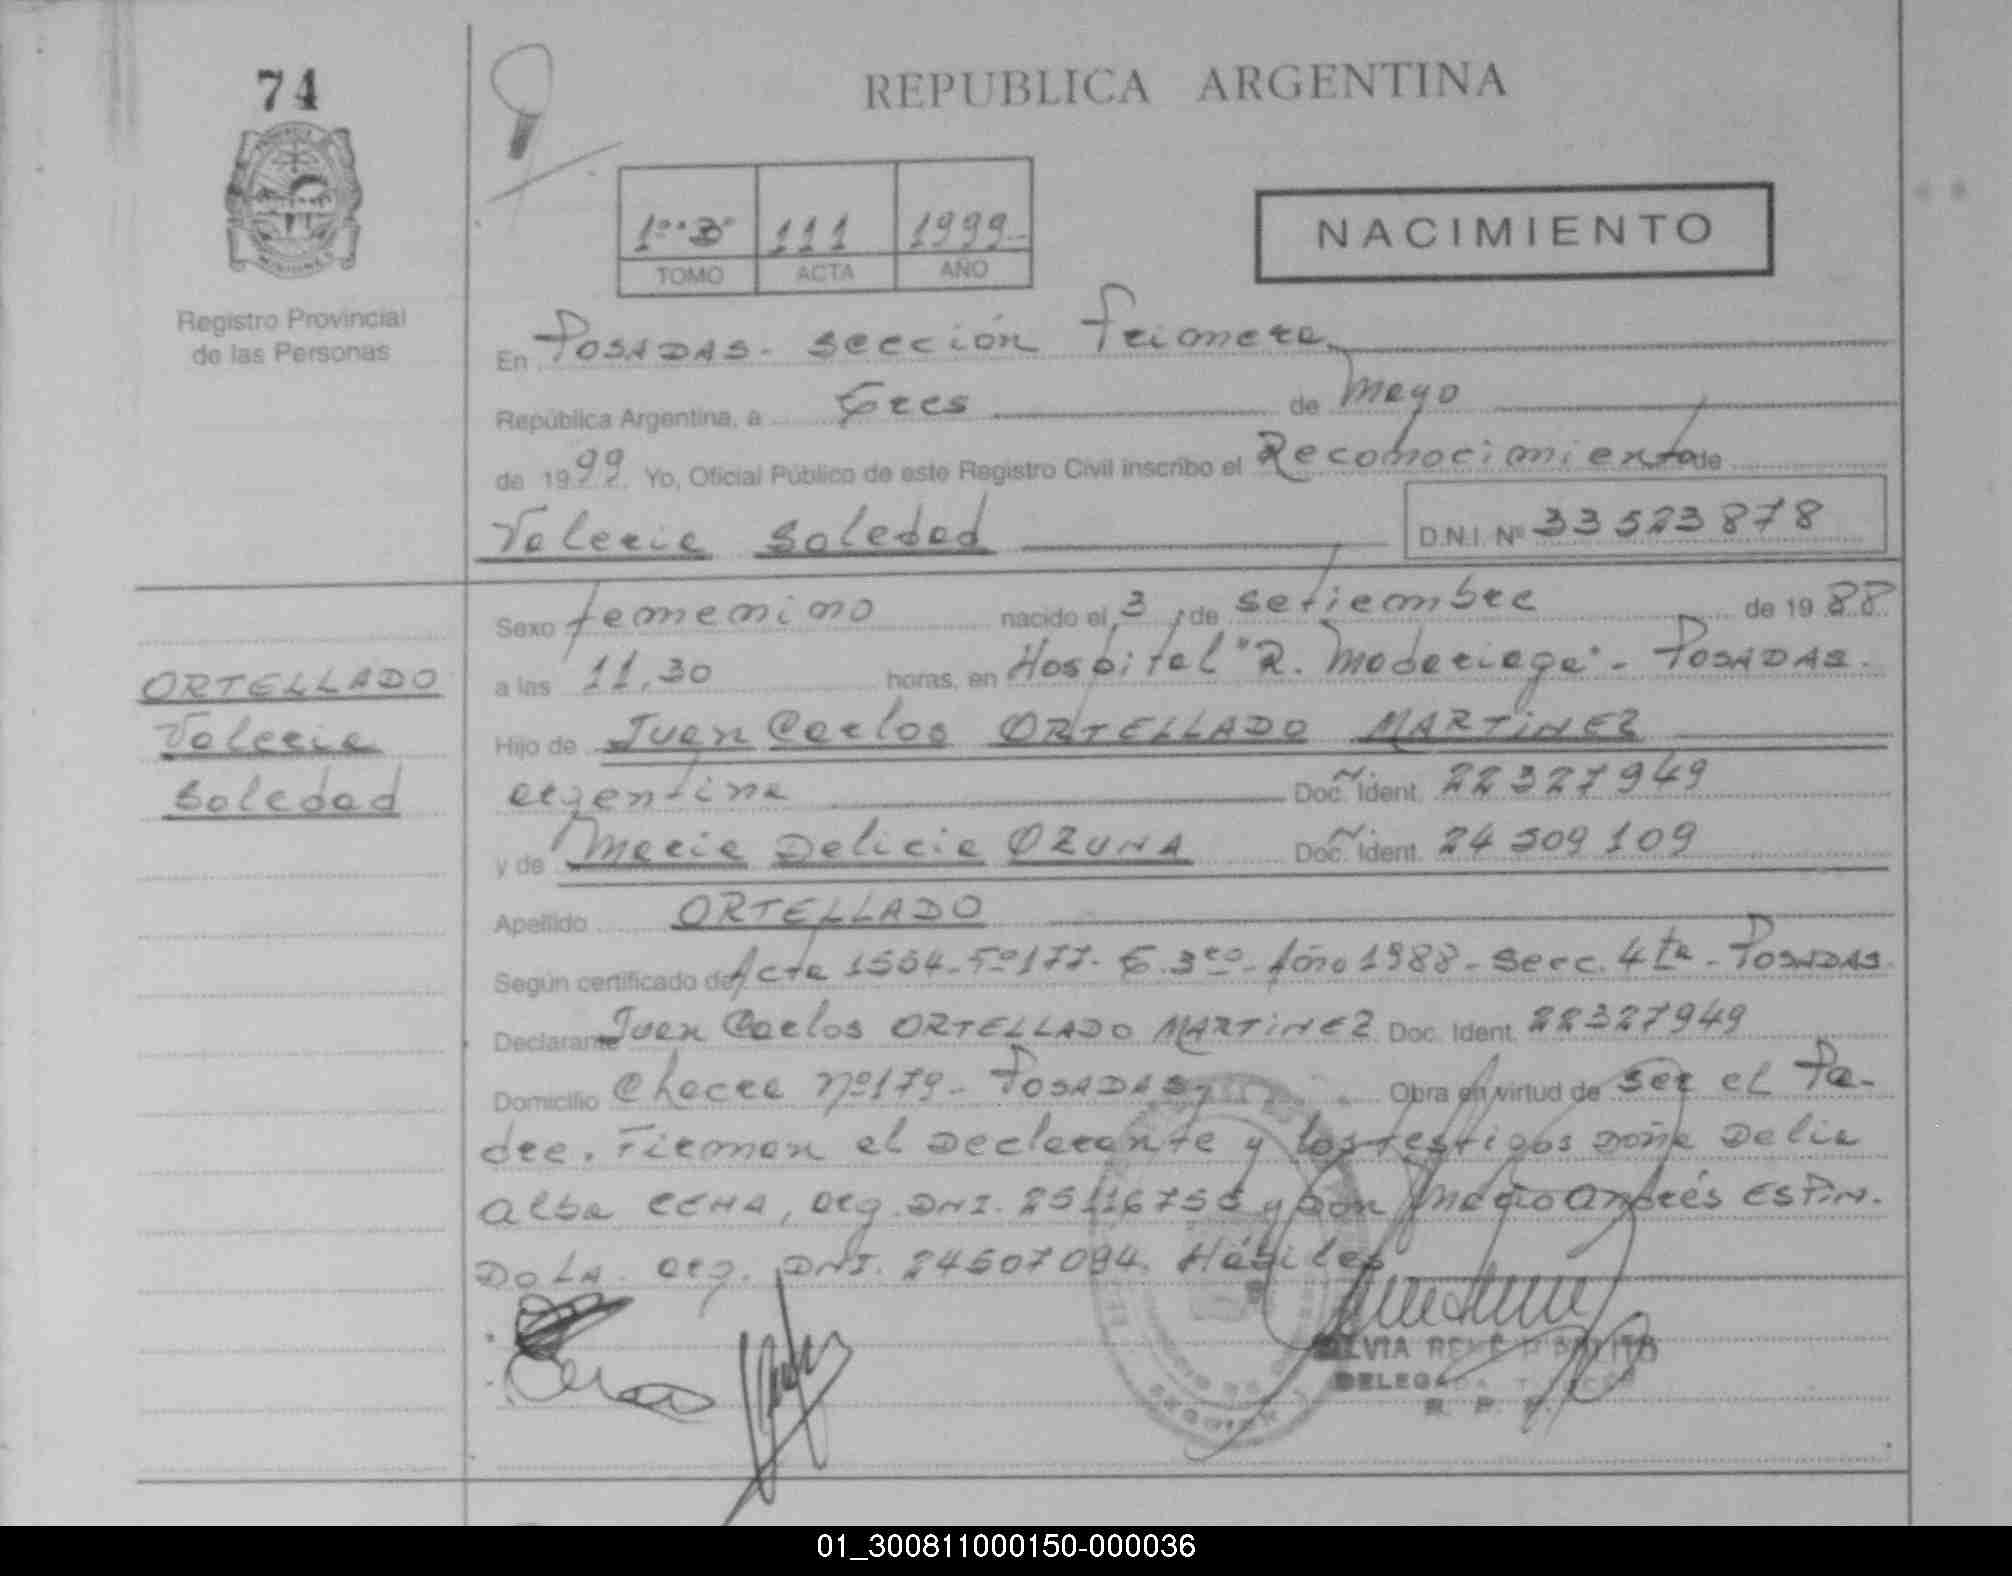 74
REPUBLICA ARGENTINA
1º "B"
111
1999
TOMO
ACTA
AÑO
NACIMIENTO
Registro Provincial
de las Personas
En Posadas - sección Primera
República Argentina, a tres de Mayo
de 1999. Yo, Oficial Público de este Registro Civil inscribo el Reconocimiento de
Valeria Soledad D.N.I. Nº 33523878
Sexo femenino nacido el 3 de setiembre de 1988
ORTELLADO
Valeria
Soledad
a las 11,30 horas, en Hospital "R. Madariaga" - Posadas.
Hijo de Juan Carlos ORTELLADO MARTINEZ
argentina Doc. Ident. 22327949
y de Maria Delicia OZUNA Doc. Ident. 24509109
Apellido ORTELLADO
Según certificado de Acta 1564 - Fº 177 - T. 3ro - Año 1988 - Secc. 4ta - Posadas.
Declarante Juan Carlos ORTELLADO MARTINEZ Doc. Ident. 22327949
Domicilio Chacra Nº 179 - Posadas, Obra en virtud de ser el Pa-
dre. Firman el Declarante y los testigos Doña Delia
Alba CENA, arg. DNI. y Don Mario Andrés ESPIN-
DOLA. arg. DNI. 24507094. Hábiles
DELEGADA
R. P. P.
01_300811000150-000036